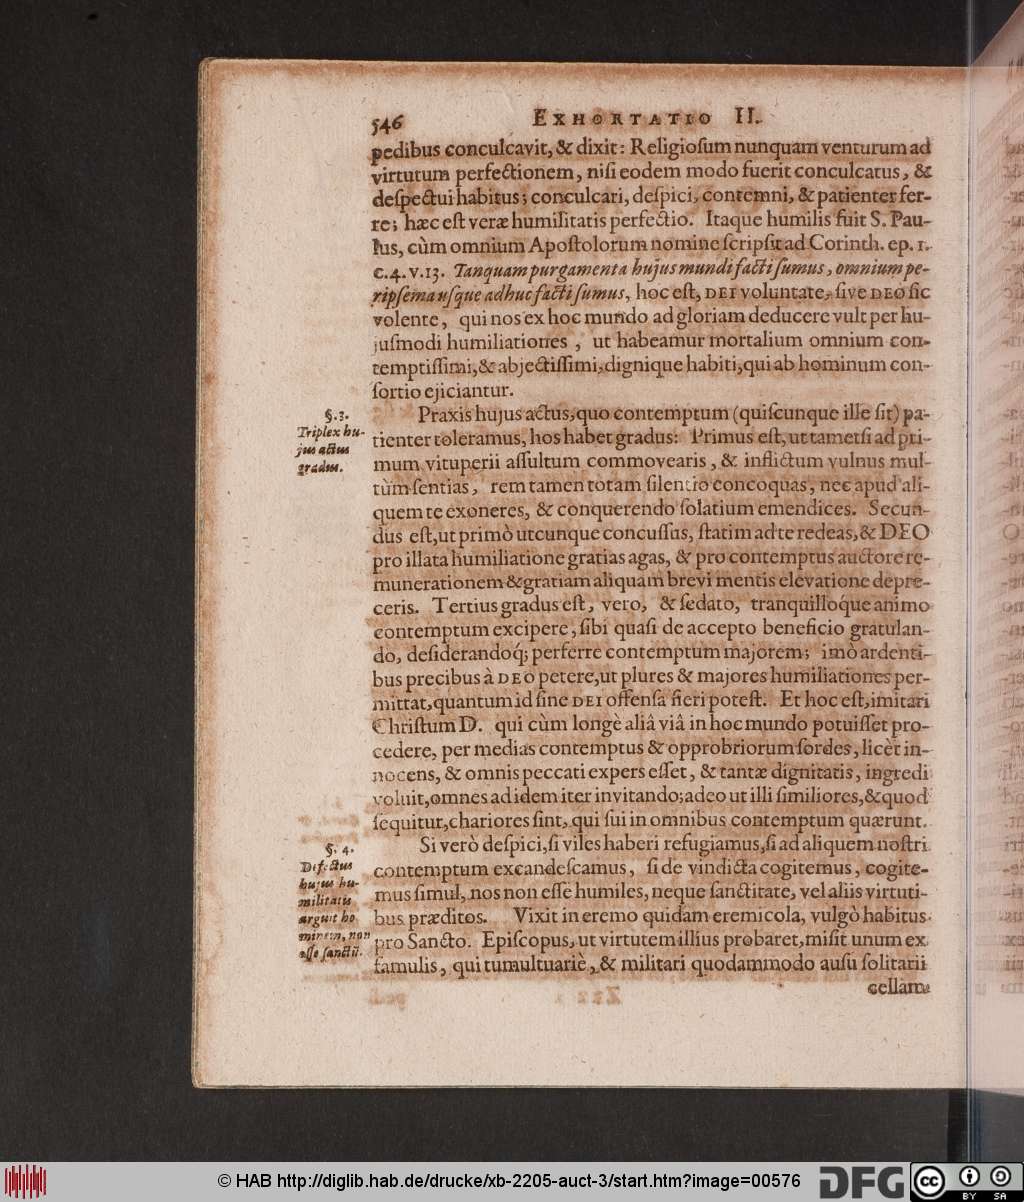 546 EXHORTATIO II.
pedibus conculcavit, & dixit: Religioſum nunquam venturum ad
virtutum perfectionem, niſi eodem modo fuerit conculcatus, &
deſpectui habitus; conculcari, deſpici, contemni, & patienter fer-
re; hæc eſt veræ humilitatis perfectio. Itaque humilis fuit S. Pau-
lus, cùm omnium Apoſtolorum nomine ſcripſit ad Corinth. ep. 1.
c. 4. v. 13. Tanquam purgamenta hujus mundi facti ſumus, omnium pe-
ripſema uſque adhuc facti ſumus, hoc eſt, DEI voluntate, ſive DEO ſic
volente, qui nos ex hoc mundo ad gloriam deducere vult per hu-
juſmodi humiliationes, ut habeamur mortalium omnium con-
temptiſſimi, & abjectiſſimi, dignique habiti, qui ab hominum con-
ſortio ejiciantur.
§. 3.
Triplex hu-
jus actus
gradus.
Praxis hujus actus, quo contemptum (quiſcunque ille ſit) pa-
tienter toleramus, hos habet gradus: Primus eſt, ut tametſi ad pri-
mum vituperii aſſultum commovearis, & inflictum vulnus mul-
tùm ſentias, rem tamen totam ſilentio concoquas, nec apud ali-
quem te exoneres, & conquerendo ſolatium emendices. Secun-
dus eſt, ut primò utcunque concuſſus, ſtatim ad te redeas, & DEO
pro illata humiliatione gratias agas, & pro contemptus auctore re-
munerationem & gratiam aliquam brevi mentis elevatione depre-
ceris. Tertius gradus eſt, vero, & ſedato, tranquilloq́ue animo
contemptum excipere, ſibi quaſi de accepto beneficio gratulan-
do, deſiderandoq́; perferre contemptum majorem; imò ardenti-
bus precibus à DEO petere, ut plures & majores humiliationes per-
mittat, quantum id ſine DEI offenſa fieri poteſt. Et hoc eſt, imitari
Chriſtum D. qui cùm longè aliâ viâ in hoc mundo potuiſſet pro-
cedere, per medias contemptus & opprobriorum ſordes, licèt in-
nocens, & omnis peccati expers eſſet, & tantæ dignitatis, ingredi
voluit, omnes ad idem iter invitando; adeo ut illi ſimiliores, & quod
ſequitur, chariores ſint, qui ſui in omnibus contemptum quærunt.
§. 4.
Defectus
hujus hu-
militatis
arguit ho
minem, non
eſſe ſanctū.
Si verò deſpici, ſi viles haberi refugiamus, ſi ad aliquem noſtri
contemptum excandeſcamus, ſi de vindicta cogitemus, cogite-
mus ſimul, nos non eſſe humiles, neque ſanctitate, vel aliis virtuti-
bus præditos. Vixit in eremo quidam eremicola, vulgò habitus
pro Sancto. Epiſcopus, ut virtutem illius probaret, miſit unum ex
famulis, qui tumultuariè, & militari quodammodo auſu ſolitarii
cellam
© HAB http://diglib.hab.de/drucke/xb-2205-auct-3/start.htm?image=00576
DFG
cc BY SA